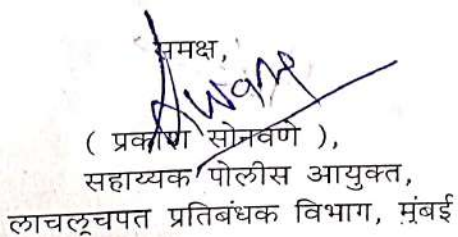 समक्ष,
( प्रकाश सोनवणे ),
सहाय्यक पोलीस आयुक्त,
लाचलूचपत प्रतिबंधक विभाग, मुंबई